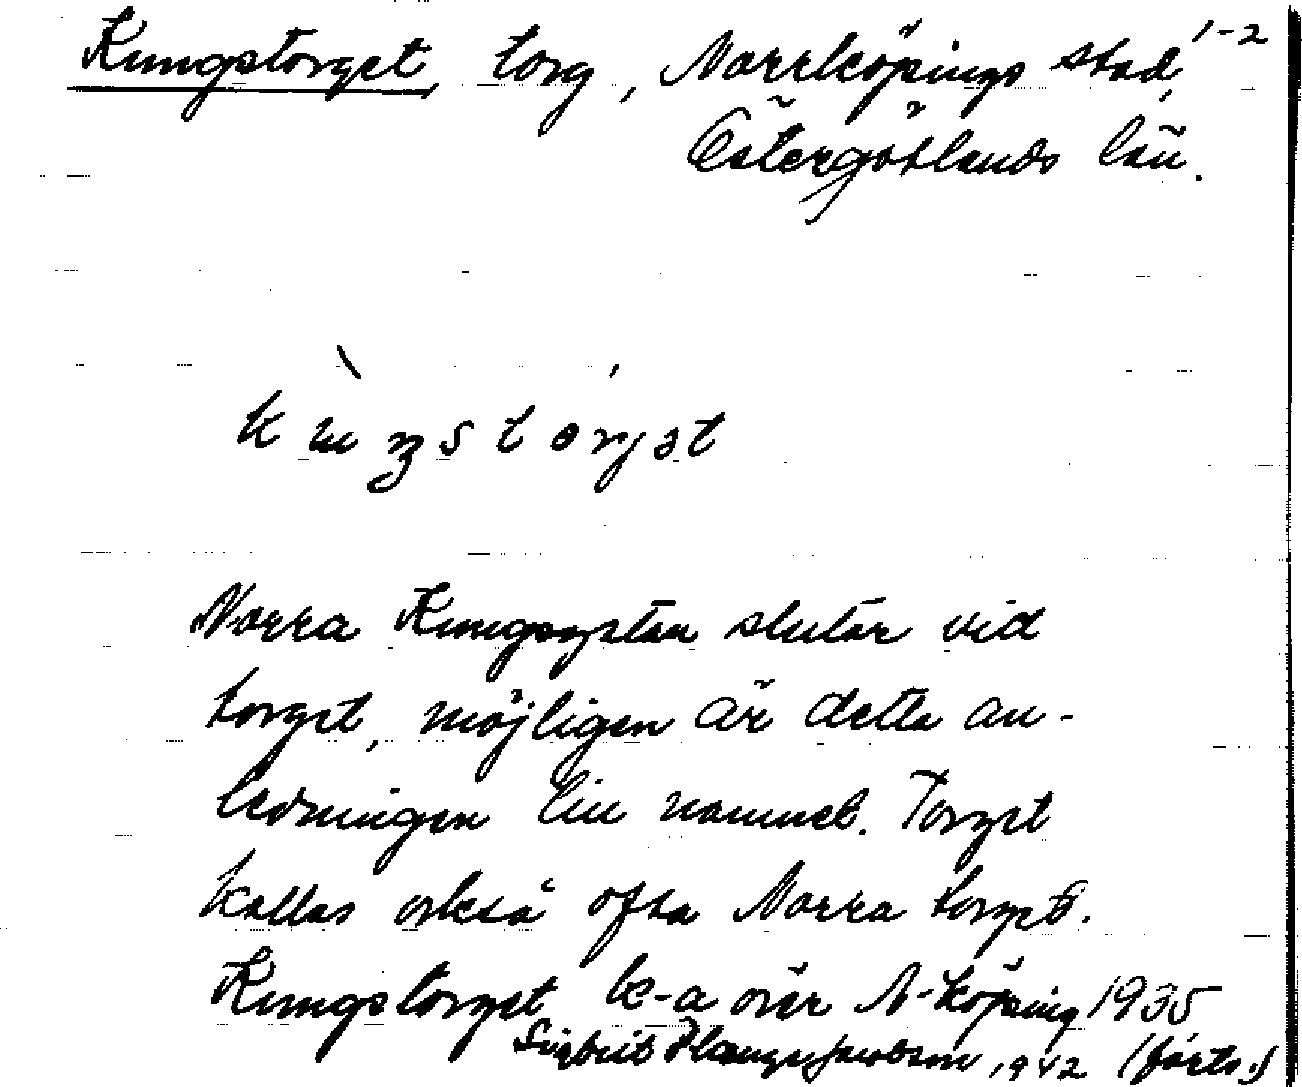 Kungstorget, torg, Norrköpings stad, 1-2
Östergötlands län.
kuŋstorjət
Norra Kungsgatan slutar vid
torget, möjligen är detta an-
ledningen till namnet. Torget
kallas också ofta Norra torget.
Kungstorget k-a över N-köping 1935
Sigbrit Jacobson, 1942 (forts.)